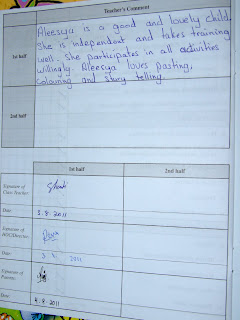 Teacher's Comment
1st half
Aleesya is a good and lovely child.
She is independent and takes training
well. She participates in all activities
willingly. Aleesya loves pasting,
colouring and story telling.
2nd half
1st half
2nd half
Signature of
Class Teacher:
Date:
3.8.2011
Signature of
Date:
2011
Signature of
Parents:
Date:
4.8.2011